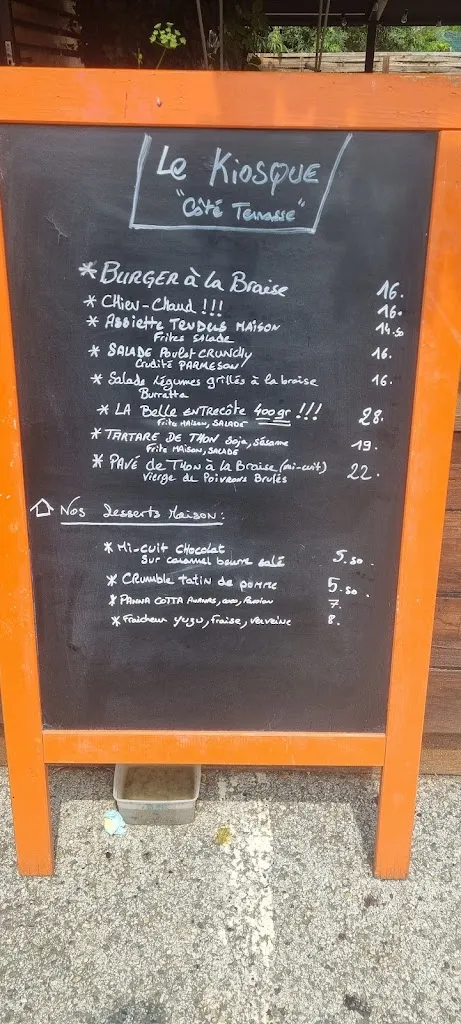 Le Kiosque
"Côté Terrasse"
* BURGER à la Braise 16.
* CHIEN-CHAUD !!! 16.
* Assiette TENDERS MAISON 14.50
Frites SALADE
* SALADE Poulet CRUNCHY 16.
Crudité PARMESAN
* Salade légumes grillés à la braise 16.
Burratta
* LA Belle ENTRECÔTE 400gr !!! 28.
Frite MAISON, SALADE
* TARTARE DE THON Soja, Sésame 19.
Frite MAISON, SALADE
* PAVÉ de THON à la Braise (mi-cuit) 22.
Vierge de Poivrons Brulés
Nos Desserts Maison:
* Mi-cuit CHOCOLAT 5.50.
Sur caramel beurre salé
* CRUMBLE tatin de pomme 5.50.
* PANNA COTTA Ananas, coco, Passion 7.
* Fraicheur yuzu, fraise, verveine 8.